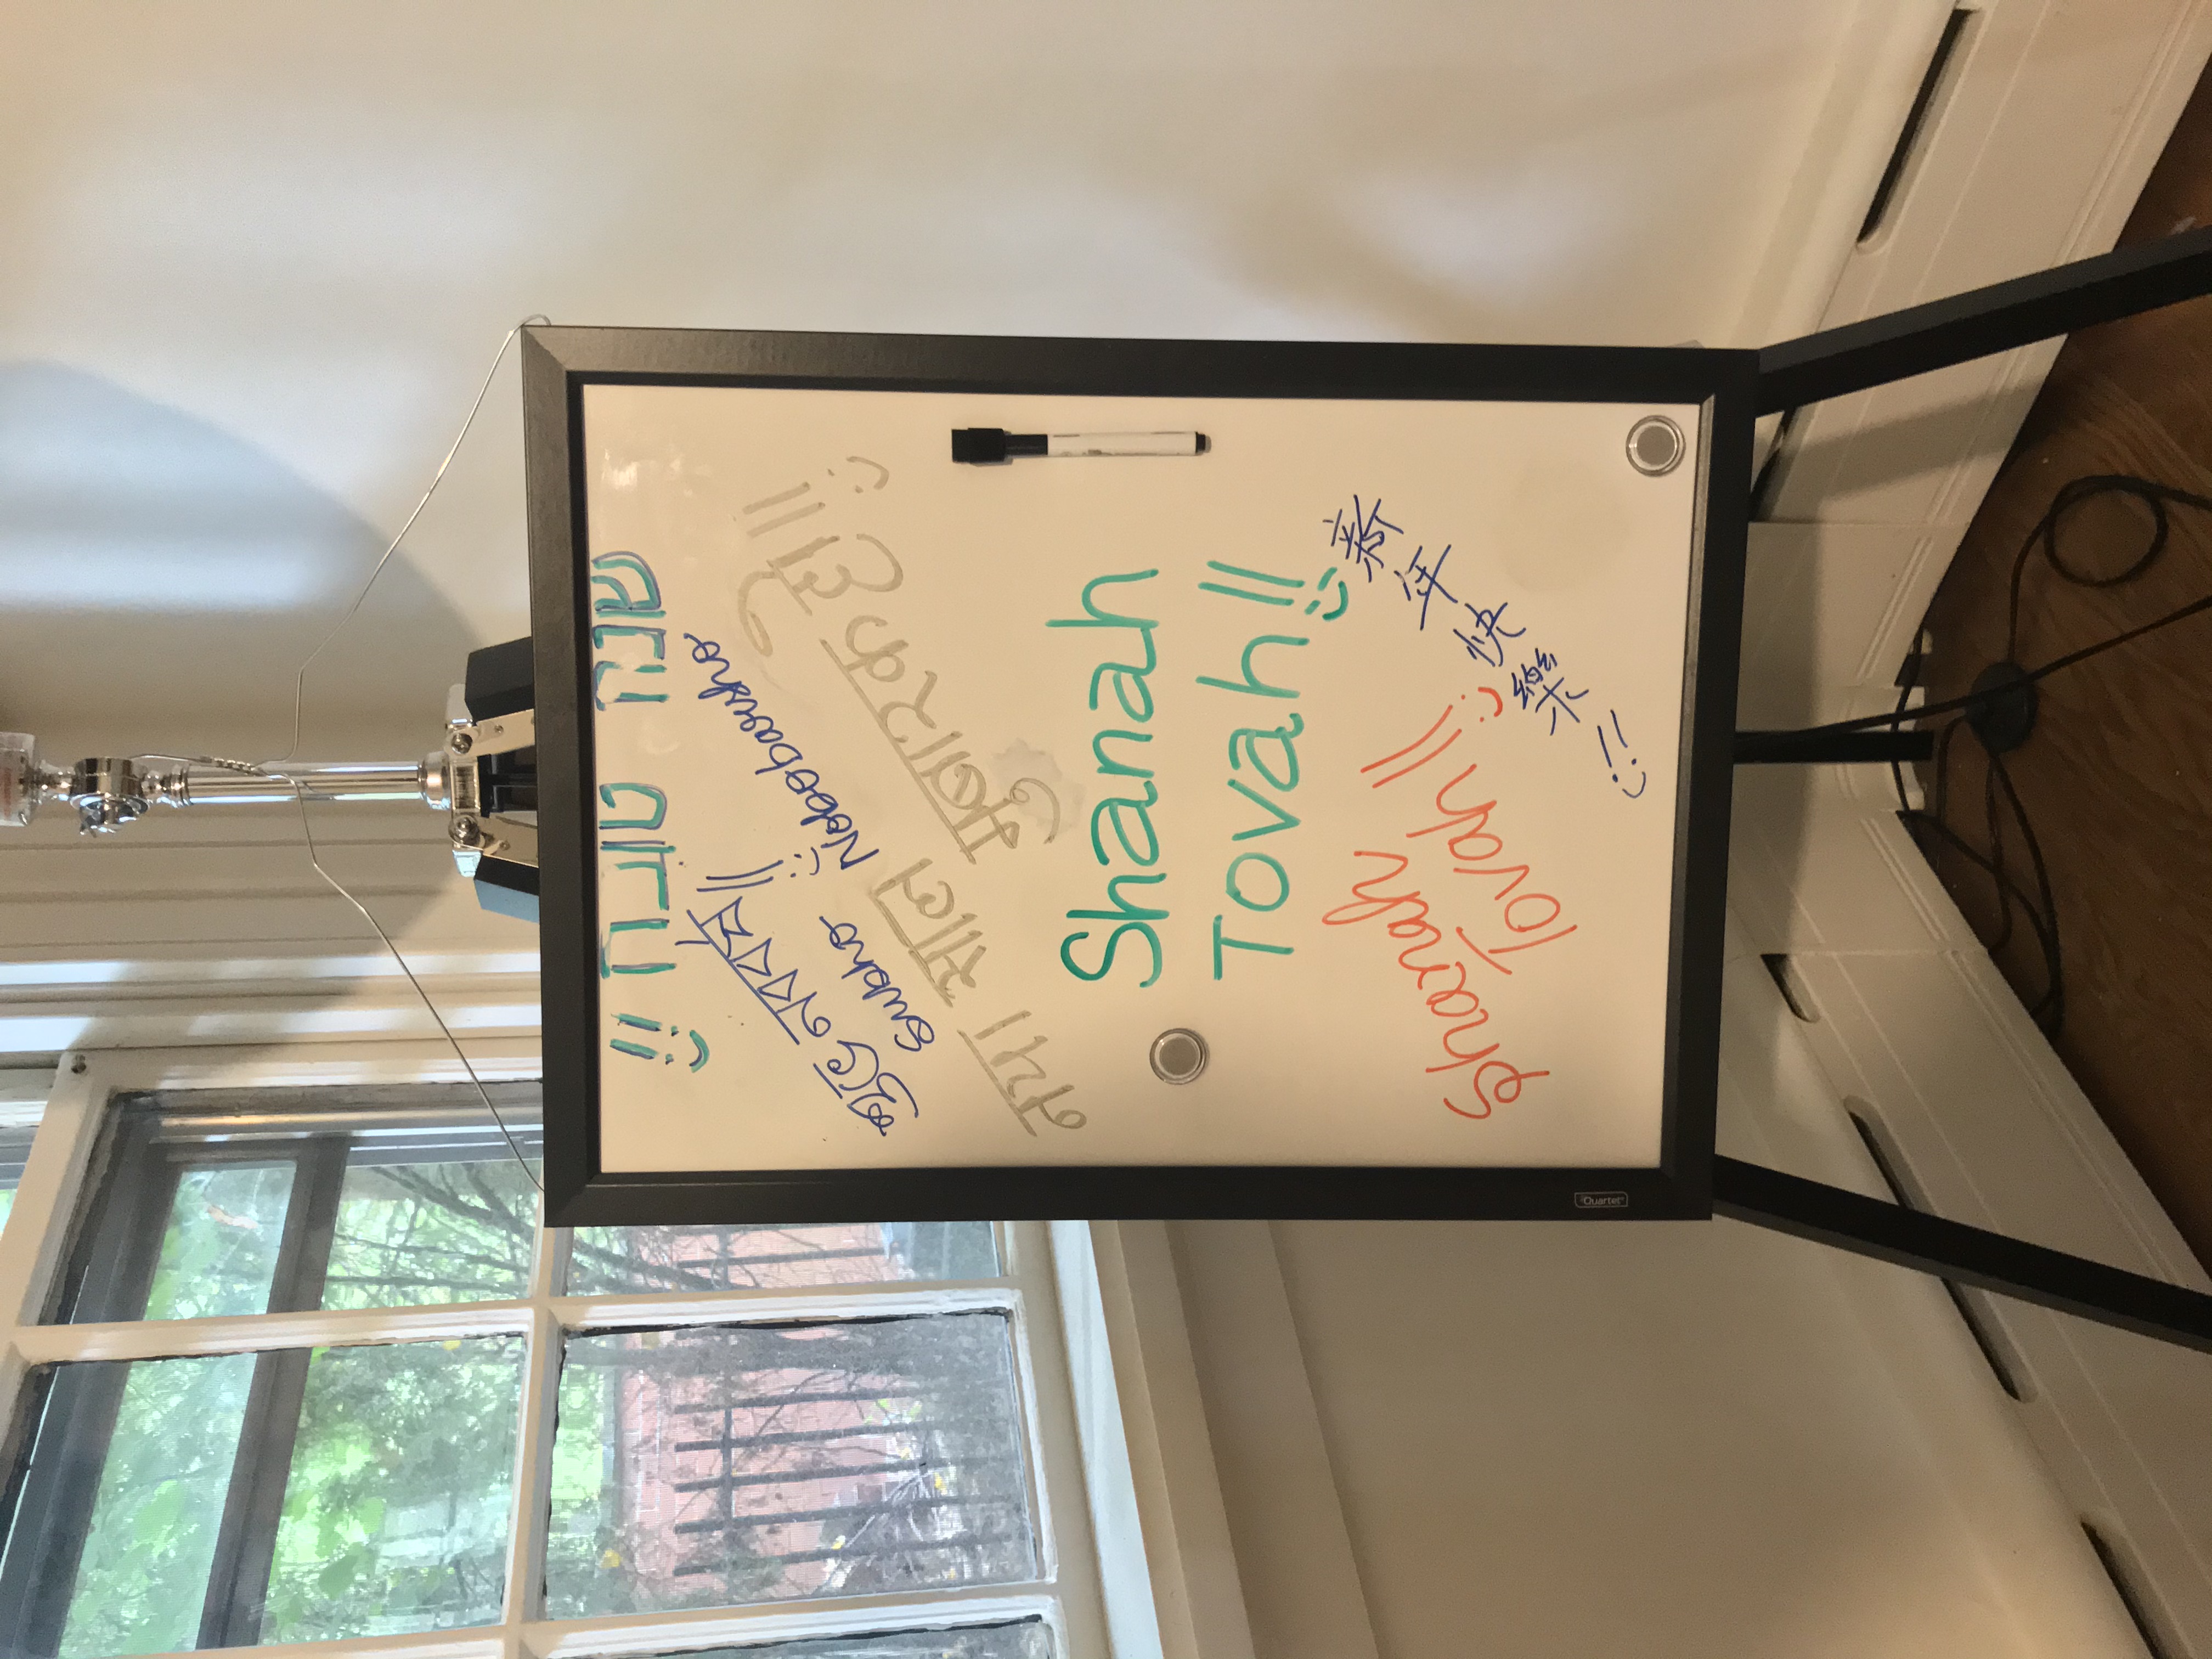 שנה טובה !!
শুভ নববর্ষ !!
Subho Nobobarsho
नया साल मुबारक हो !!
Shanah
Tovah !!
Shanah
Tovah !!
新年快樂 !!
Quartet